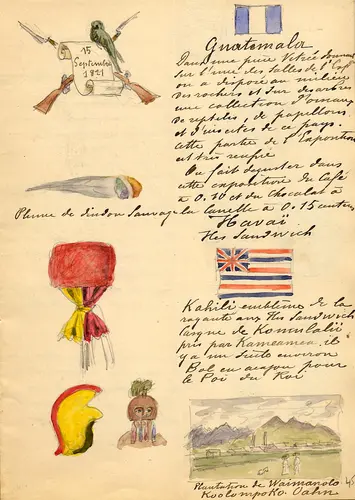 15
Septembre
1821
Guatemala
Dans une pièce Vitrée donnant
sur l'une des salles de l'Exp
on a disposé au milieu
des rochers et sur des arbres
une collection d'oiseaux
de reptiles, de papillons
et d'insectes de ce pays.
cette partie de l'Exposition
est très
On fait déguster dans
cette exposition du Café
à 0.10 et du Chocolat à
la Canelle à 0.15 centimes
Plume de dindon Sauvage
Havaï
Iles Sandwich
Kahili emblême de la
royauté aux Iles Sandwich
Casque de
pris par il
y a un Siècle environ
Bol en acajou pour
le Poï du Roi
Plantation de Waimanolo
Koolompoko Oahu